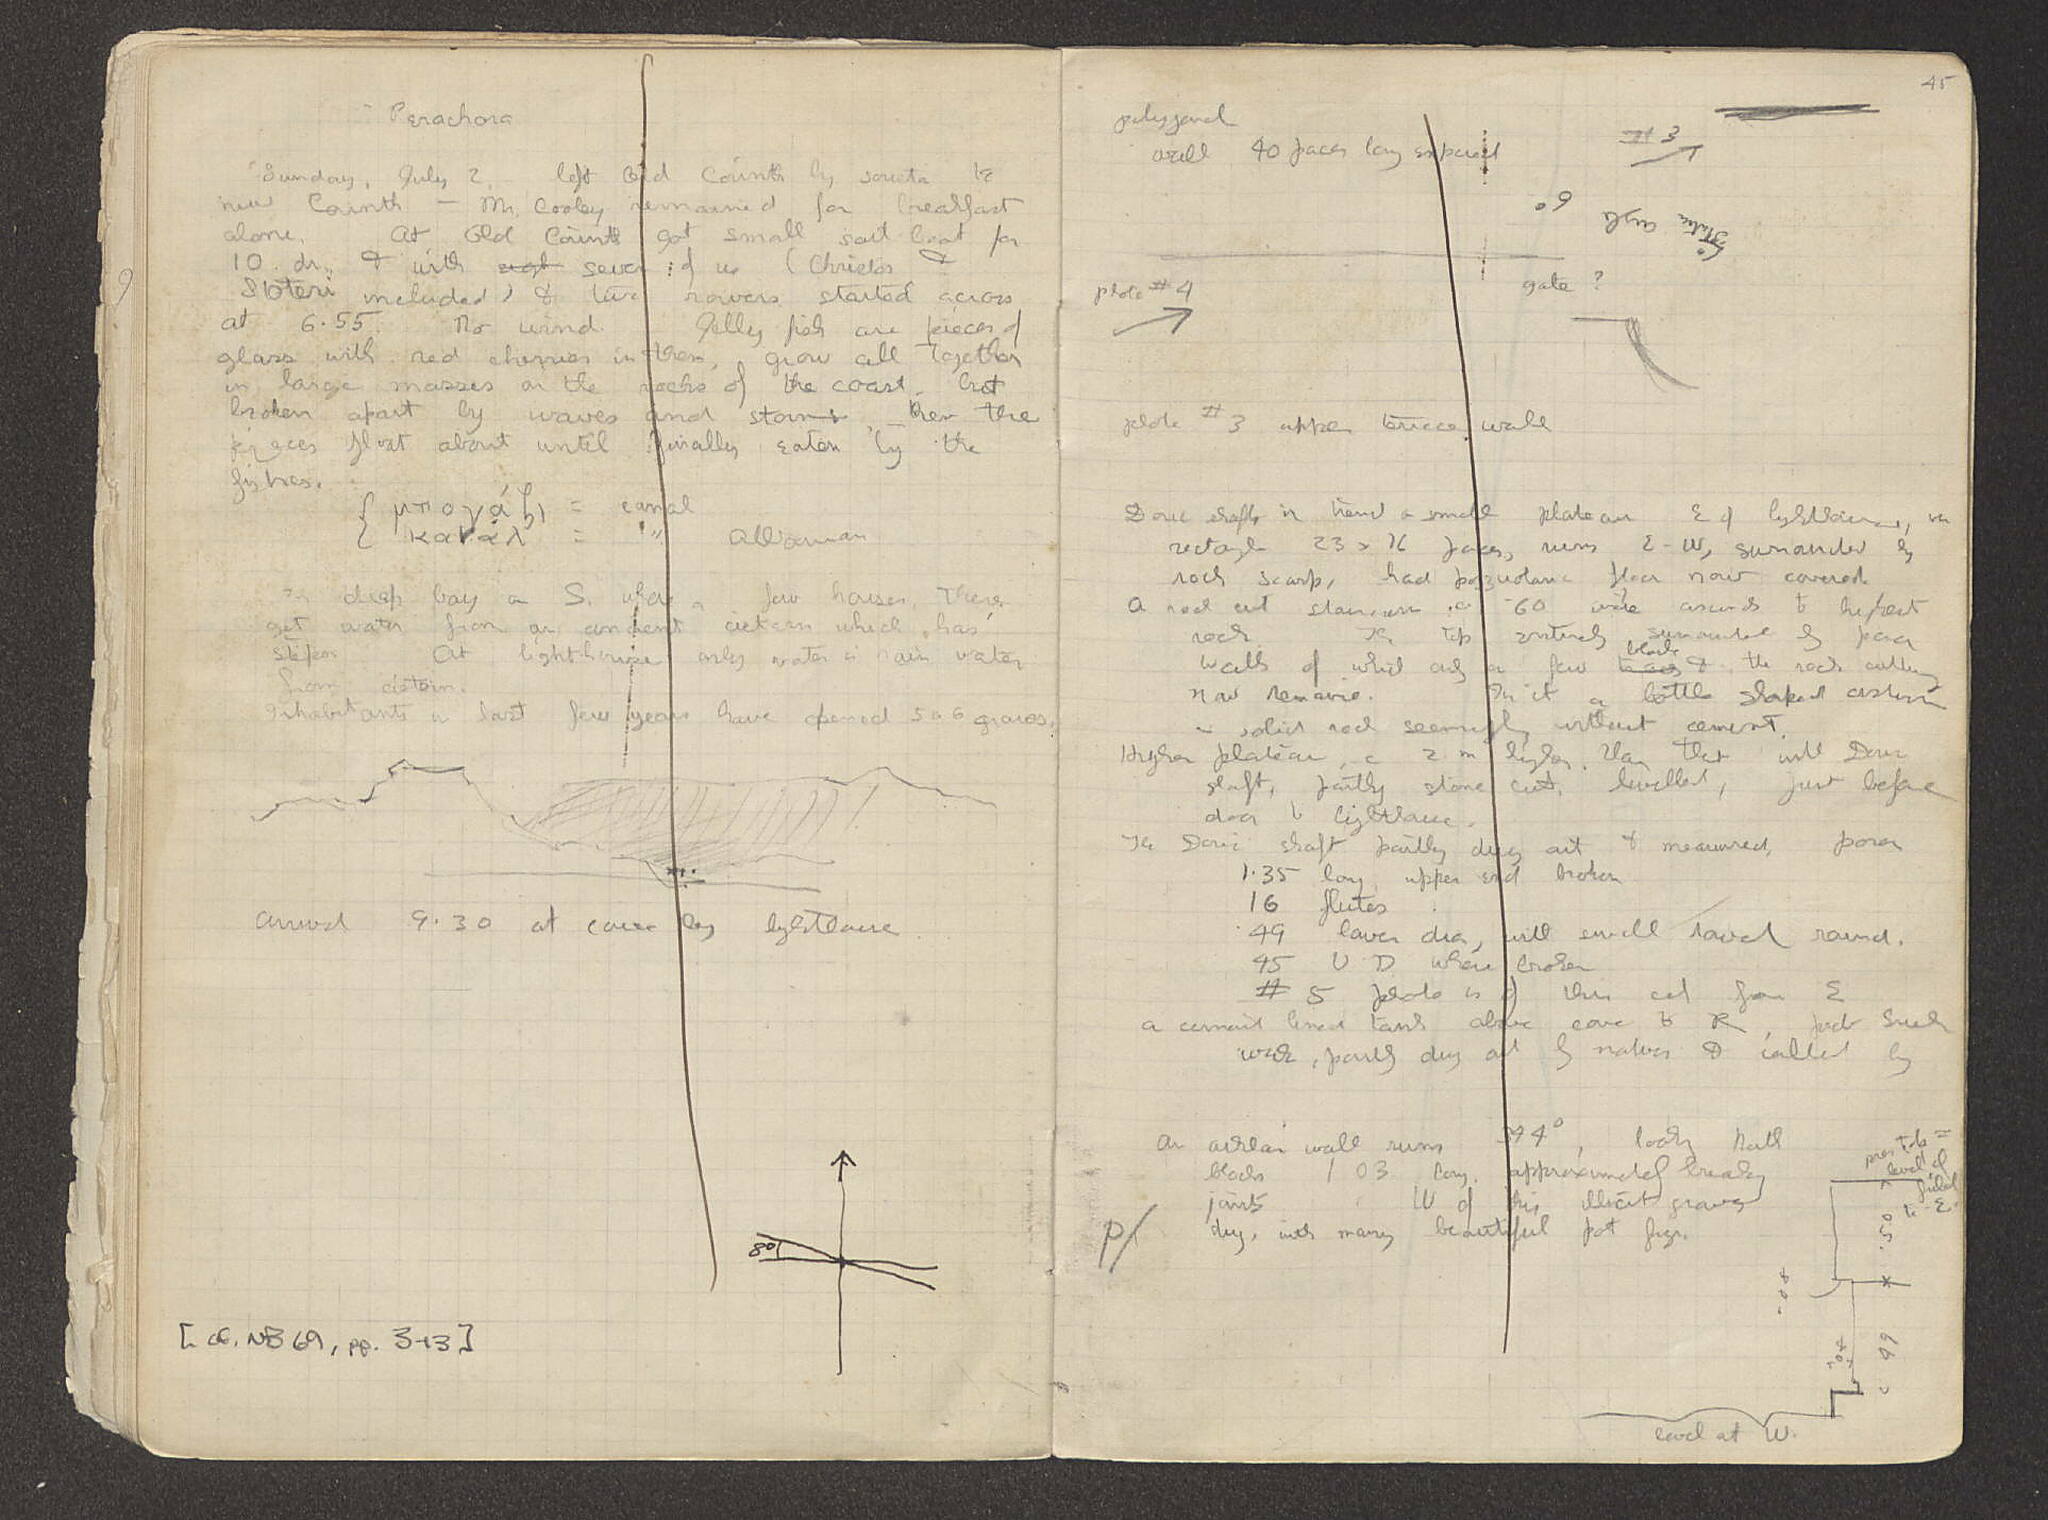 Perachora
Sunday, July 2. left Old Corinth by sousta to
new Corinth — Mr. Cooley remained for breakfast
alone. At Old Corinth got small sail boat for
10 dr., & with seven of us (Christos &
Soteri included) & two rowers started across
at 6.55. No wind. Jelly fish are pieces of
glass with red cherries in them, grow all together
in large masses on the rocks of the coast, but
broken apart by waves and storms, then the
pieces float about until finally eaten by the
fishes.
{ μπογάζι = canal
{ κανάλ = " Albanian
deep bay on S. where a few houses. There
get water from an ancient cistern which has
steps. At lighthouse only water is rain water
from cistern.
Inhabitants in last few years have opened 5 or 6 graves.
arrived 9.30 at cove by lighthouse
8°
[cf. NB 69, pp. 3-13]
45
polygonal
wall 40 paces long exposed
# 3
6°
angle
photo # 4
gate ?
photo # 3 upper terrace wall
Doric shaft in trench on small plateau E of lighthouse,
rectangle 23 x 16 paces, runs E-W, surrounded by
rock scarp, had floor now covered
A rock cut staircase c .60 wide ascends to highest
rock. The top entirely surrounded by poros
walls of which only a few blocks & the rock cutting
now remains. In it a bottle shaped cistern
in solid rock seemingly without cement.
Higher plateau, c 2 m higher than that with Doric
shaft, partly stone cut, levelled, just before
door to lighthouse.
The Doric shaft partly dug out & measured, poros
1.35 long, upper end broken
16 flutes
.49 lower dia, with small round.
45 U D where broken
# 5 photo is of this col from E
a cement lined tank above cove to R, just such
work, partly dug out by natives & called by
An ashlar wall runs 344°, looking North
blocks 1 03 long, approximately breaking
joints W of this illicit graves
p/ dug, with many beautiful pot frgs.
pres top =
level of
field
to E.
.50
.99
level at W.